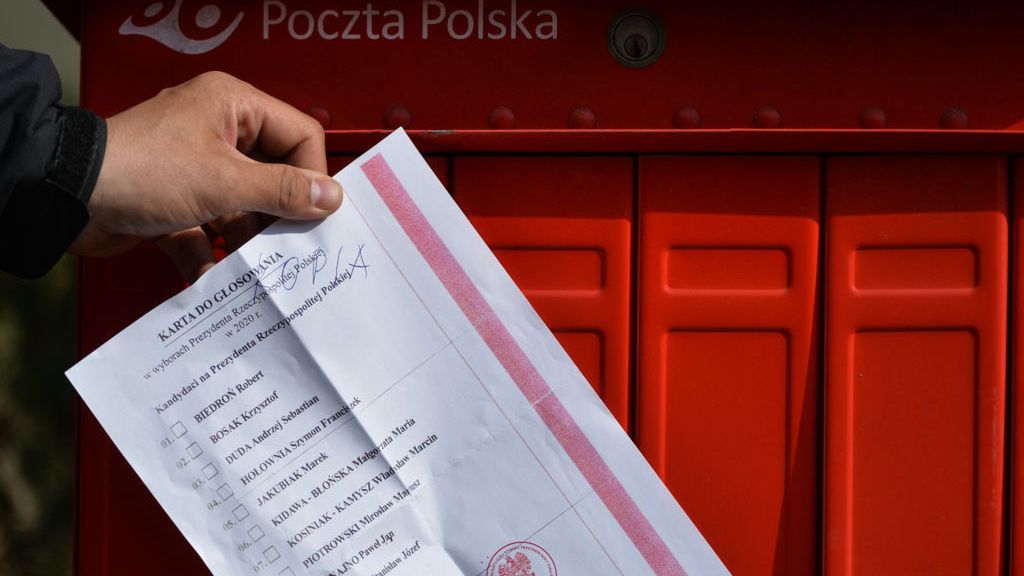 Poczta Polska
KARTA DO GŁOSOWANIA
w wyborach Prezydenta Rzeczypospolitej Polskiej
w 2020 r.
KOPIA
Kandydaci na Prezydenta Rzeczypospolitej Polskiej
01. BIEDROŃ Robert
02. BOSAK Krzysztof
03. DUDA Andrzej Sebastian
04. HOŁOWNIA Szymon Franciszek
05. JAKUBIAK Marek
06. KIDAWA - BŁOŃSKA Małgorzata Maria
07. KOSINIAK - KAMYSZ Władysław Marcin
PIOTROWSKI Mirosław Mariusz
Paweł Jan
Józef